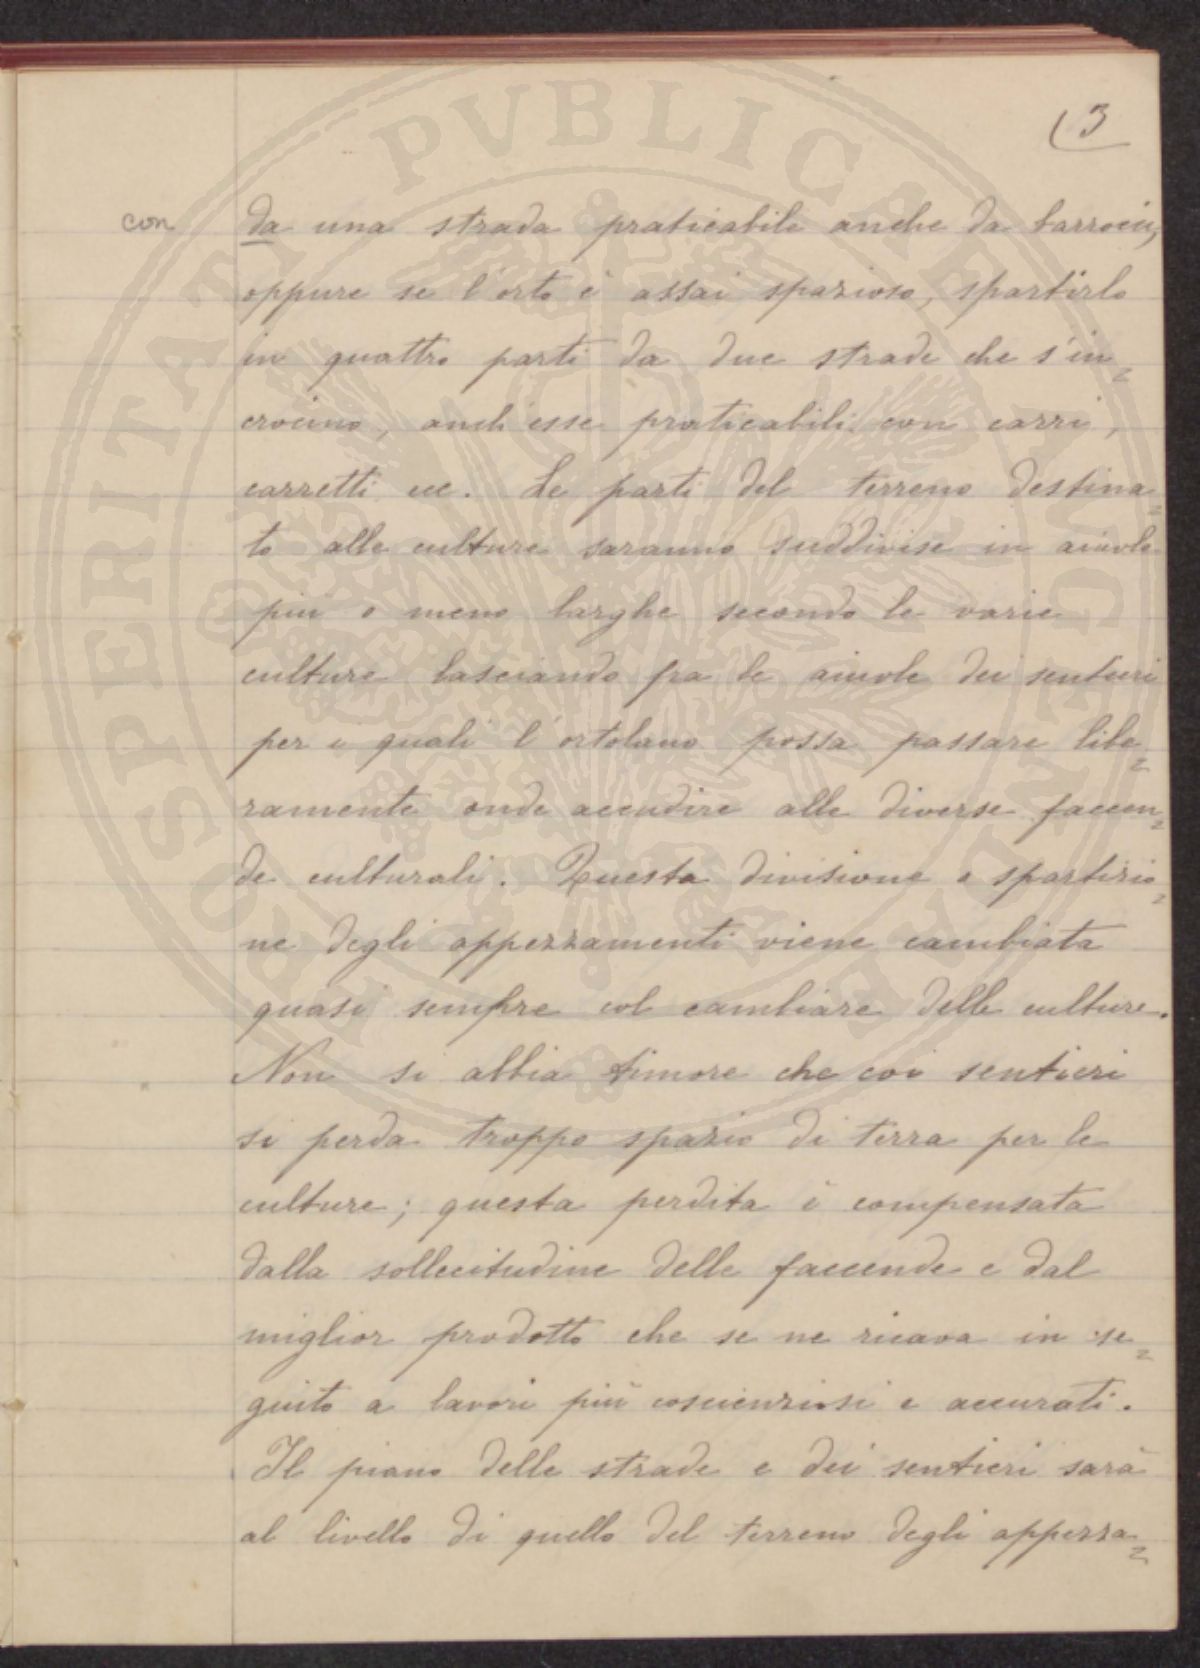 (3
con
da una strada praticabile anche da barrocci,
oppure se l'orto è assai spazioso, spartirlo
in quattro parti da due strade che s'in=
crocino, anch'esse praticabili con carri,
carretti ecc. Le parti del terreno destina=
to alle culture saranno suddivise in aiuole
più o meno larghe secondo le varie
culture lasciando fra le aiuole dei sentieri
per i quali l'ortolano possa passare libe=
ramente onde accudire alle diverse faccen=
de culturali. Questa divisione e spartizio=
ne degli appezzamenti viene cambiata
quasi sempre col cambiare delle culture.
Non si abbia timore che coi sentieri
si perda troppo spazio di terra per le
culture; questa perdita è compensata
dalla sollecitudine delle faccende e dal
miglior prodotto che se ne ricava in se=
guito a lavori più coscienziosi e accurati.
Il piano delle strade e dei sentieri sarà
al livello di quello del terreno degli appezza=
PROSPERITATI PVBLICAE AVGENDAE